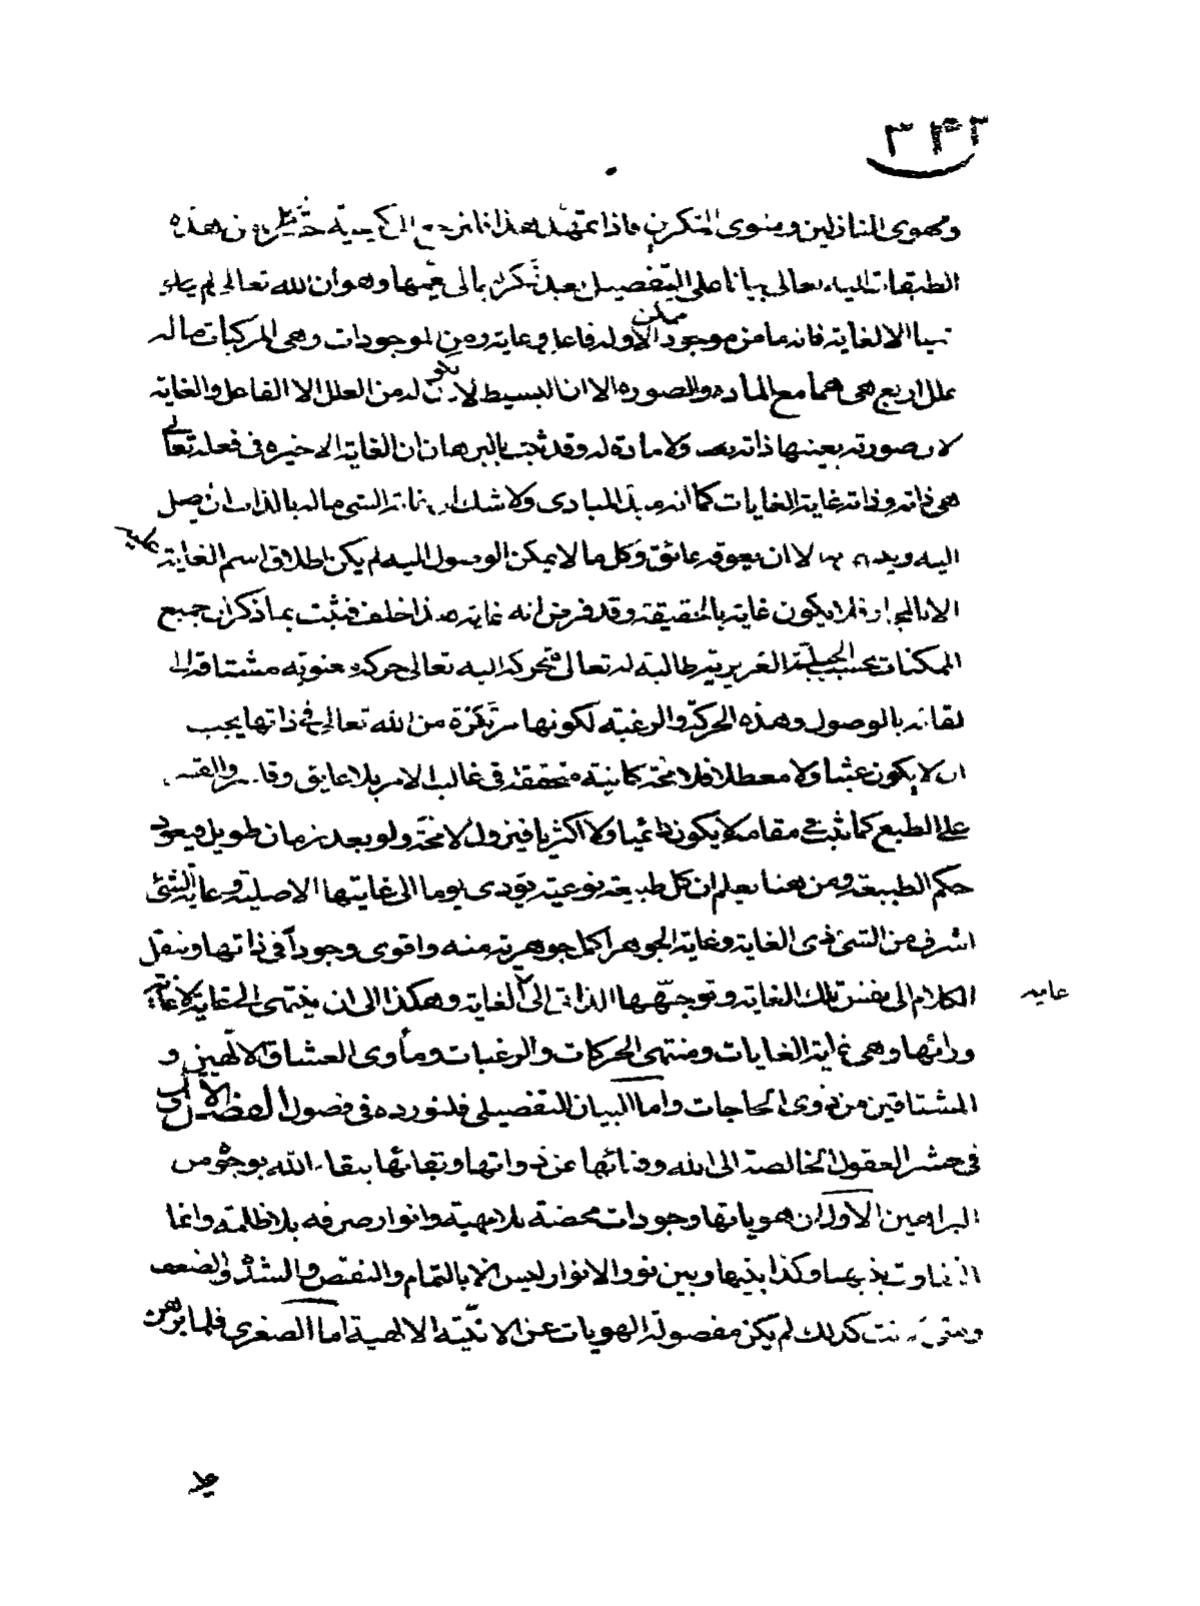 ٣٤٢
ومهوى النازلين ومثوى المتكبرين فاذا تمهد هذا فلنرجع الى كيفية حشر من هذه
الطبقات اليه تعالى بيانا على التفصيل بعد ذكر اجمالى يعمها وهو أن الله تعالى لم يخلق
شيئا الا لغاية فانه ما من موجود ممكن الا وله فاعل وغاية ومن الموجودات وهى المركبات ما له
علل اربع هى هما مع المادة والصورة الا ان البسيط لا يكون له من العلل الا الفاعل والغاية
لان صورته بعينها ذاته ولا مادة له وقد ثبت بالبرهان ان الغاية الاخيرة فى فعله تعالى
هى ذاته وذاته غاية الغايات كما انه مبدأ المبادى ولا شك ان غاية الشى ما له بالذات ان يصل
اليه الا ان يعوقه عائق وكل ما لا يمكن الوصول اليه لم يكن اطلاق اسم الغاية عليه
الا بالمجاز فلا يكون غاية بالحقيقة وقد فرض انه غاية هذا خلف فثبت بما ذكر ان جميع
الممكنات بحسب الجبلة الغريزية طالبة له تعالى متحركة اليه تعالى حركة معنوية مشتاقة الى
لقائه بالوصول وهذه الحركة والرغبة لكونها مرتكزة من الله تعالى فى ذاتها يجب
ان لا يكون عبثا ولا معطلا فلا محة كائنة متحققة فى غالب الامر بلا عايق وقاسر والقسر
على الطبع كما ثبت فى مقامه لا يكون دائميا ولا اكثريا فيزول لا محة ولو بعد زمان طويل فيعود
حكم الطبيعة ومن هنا يعلم ان كل طبيعة نوعية يؤدى يوما الى غايتها الاصلية وغاية الشئ
اشرف من الشئ ذى الغاية وغاية الجوهر اكمل جوهرية منه واقوى وجوداً فى ذاتها وننقل
الكلام الى نفس تلك الغاية وتوجهها الذاتى الى الغاية وهكذا الى ان ينتهى الى غاية لا غاية
غايه
ورائها وهى غاية الغايات ومنتهى الحركات والرغبات ومأوى العشاق الالهيين و
المشتاقين من ذوى الحاجات واما البيان التفصيلى فلنورده فى فصول الفصل الاول
فى حشر العقول الخالصة الى الله وفنائها عن ذواتها وبقائها ببقاء الله بوجوه من
البراهين الاول ان هوياتها وجودات محضة بلا مهية وانوار صرفه بلا ظلمة وانما
التفاوت بينها وكذا بينها وبين نور الانوار ليس الا بالتمام والنقص والشدة والضعف
ومتى كانت كذلك لم يكن مفصولة الهويات عن الانية الالهية اما الصغرى فلما برهن
عليه